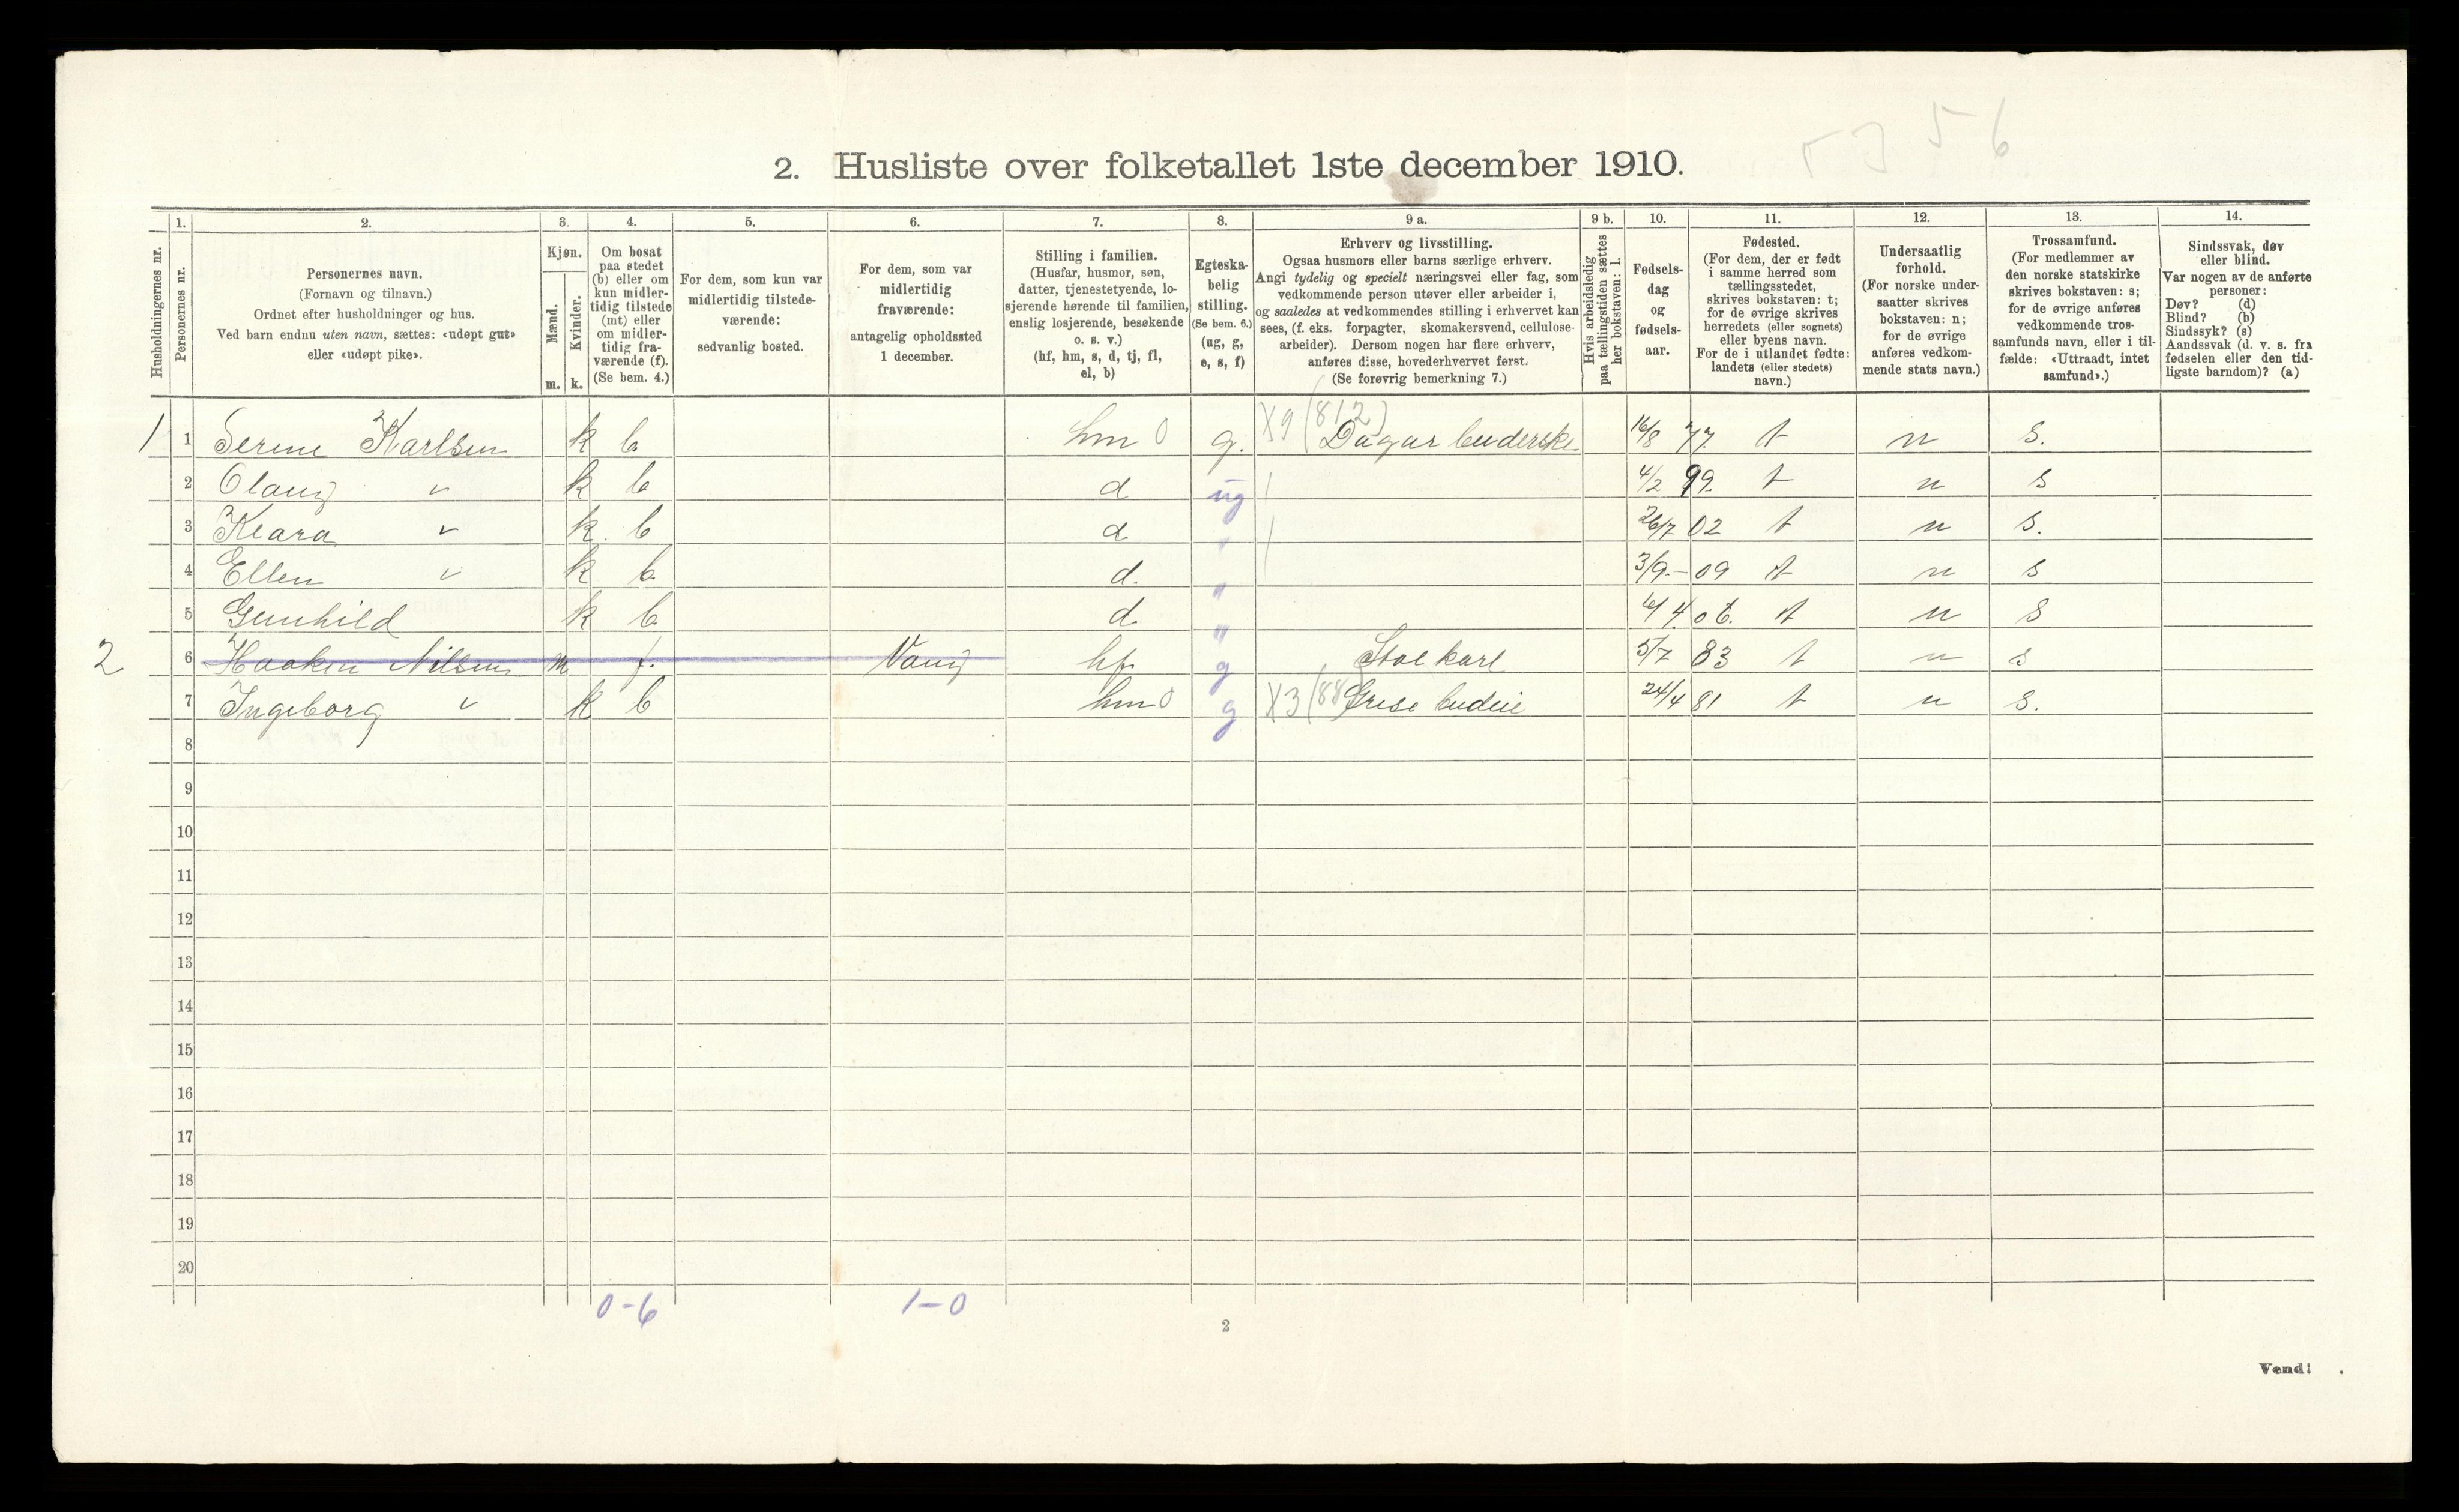 5356
2. Husliste over folketallet 1ste december 1910.
Husholdningernes nr.
1.
Personernes nr.
2.
Personernes navn.
(Fornavn og tilnavn.)
Ordnet efter husholdninger og hus.
Ved barn endnu uten navn, sættes: «udøpt gut»
eller «udøpt pike».
3.
Kjøn.
Mænd.
m.
Kvinder.
k.
4.
Om bosat
paa stedet
(b) eller om
kun midler-
tidig tilstede
(mt) eller
om midler-
tidig fra-
værende (f).
(Se bem. 4.)
5.
For dem, som kun var
midlertidig tilstede-
værende:
sedvanlig bosted.
6.
For dem, som var
midlertidig
fraværende:
antagelig opholdssted
1 december.
7.
Stilling i familien.
(Husfar, husmor, søn,
datter, tjenestetyende, lo-
sjerende hørende til familien,
enslig losjerende, besøkende
o. s. v.)
(hf, hm, s, d, tj, fl,
el, b)
8.
Egteska-
belig
stilling.
(Se bem. 6.)
(ug, g,
e, s, f)
9 a.
Erhverv og livsstilling.
Ogsaa husmors eller barns særlige erhverv.
Angi tydelig og specielt næringsvei eller fag, som
vedkommende person utøver eller arbeider i,
og saaledes at vedkommendes stilling i erhvervet kan
sees, (f. eks. forpagter, skomakersvend, cellulose-
arbeider). Dersom nogen har flere erhverv,
anføres disse, hovederhvervet først.
(Se forøvrig bemerkning 7.)
9 b.
Hvis arbeidsledig
paa tællingstiden sættes
her bokstaven: l.
10.
Fødsels-
dag
og
fødsels-
aar.
11.
Fødested.
(For dem, der er født
i samme herred som
tællingsstedet,
skrives bokstaven: t;
for de øvrige skrives
herredets (eller sognets)
eller byens navn.
For de i utlandet fødte:
landets (eller stedets)
navn.)
12.
Undersaatlig
forhold.
(For norske under-
saatter skrives
bokstaven: n;
for de øvrige
anføres vedkom-
mende stats navn.)
13.
Trossamfund.
(For medlemmer av
den norske statskirke
skrives bokstaven: s;
for de øvrige anføres
vedkommende tros-
samfunds navn, eller i til-
fælde: «Uttraadt, intet
samfund».)
14.
Sindssvak, døv
eller blind.
Var nogen av de anførte
personer:
Døv? (d)
Blind? (b)
Sindssyk? (s)
Aandssvak (d. v. s. fra
fødselen eller den tid-
ligste barndom)? (a)
1 1 Serine Karlsen k b hm 0 g. X9 (812) 16/8 77 t n s.
2 Olaug " k b d ug 4/2 99. t n s
3 Klara " k b d " 26/7 02 t n s.
4 Ellen " k b d. " 3/9 - 09 t n s
5 Gunhild k b d " 4. 06. t n s
2 6 Haaken Nilsen m f. Vang hf g Stalkarl 5/7 83 t n s
7 Ingeborg " k b hm 0 g X3 (88) Grisebudeie 24/4 81 t n s.
8
9
10
11
12
13
14
15
16
17
18
19
20
0-6 1-0
2
Vend!